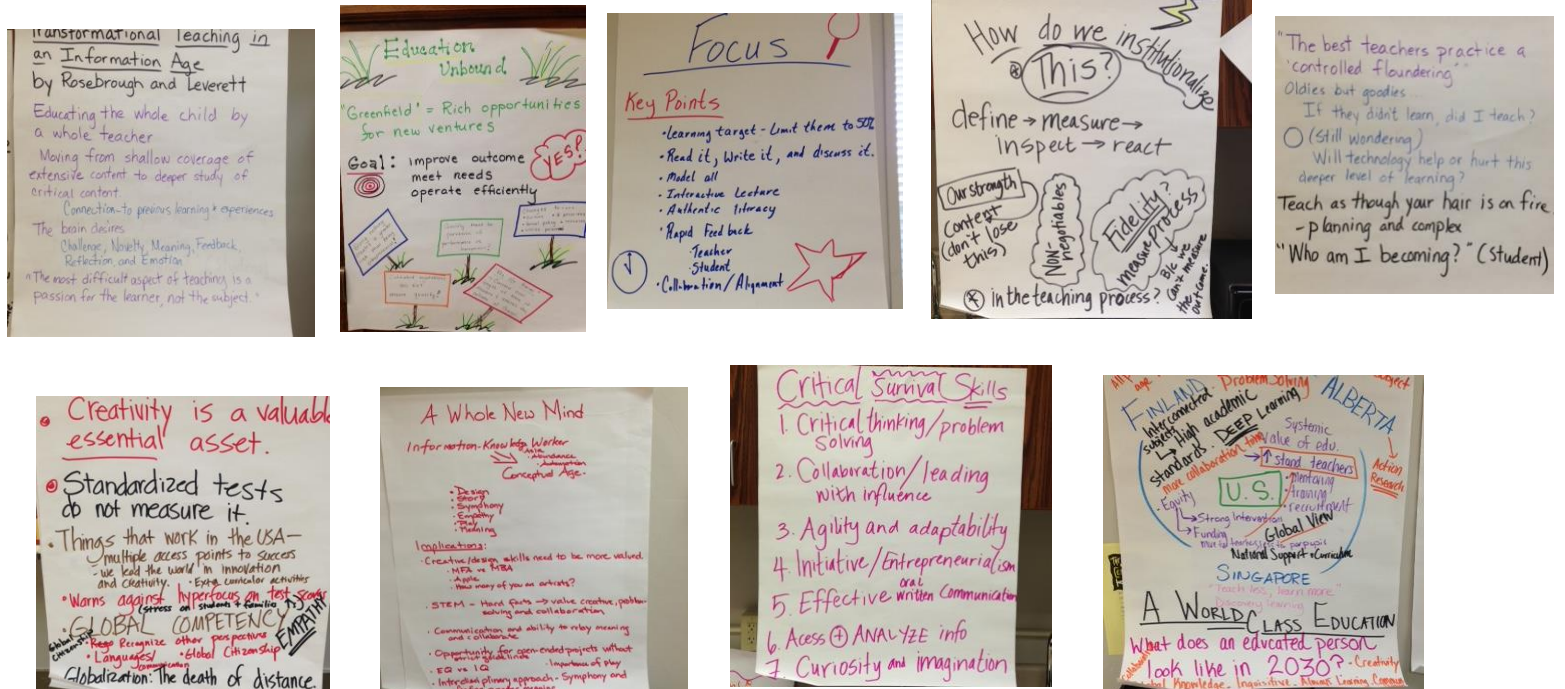 Transformational Teaching in
an Information Age
by Rosebrough and Leverett
Educating the whole child by
a whole teacher
Moving from shallow coverage of
extensive content to deeper study of
critical content.
Connection-to previous learning + experiences
The brain desires
Challenge, Novelty, Meaning, Feedback,
Reflection and Emotion
"The most difficult aspect of teaching is a
passion for the learner, not the subject."
Education
Unbound
"Greenfield" = Rich opportunities
for new ventures
YES?
Goal: improve outcome
meet needs
operate efficiently
Focus
Key Points
• Learning target - Limit them to 50%
• Read it, Write it, and discuss it.
• Model all
• Interactive Lecture
• Authentic literacy
• Rapid Feedback
Teacher
Student
• Collaboration/Alignment
How do we institutionalize
This?
define → measure →
inspect → react
Our strength
Content
(don't lose
this)
Non-
negotiables
Fidelity?
measure process
B/c we
can't measure
the
outcome.
in the teaching process?
"The best teachers practice a
'controlled floundering'"
Oldies but goodies
If they didn't learn, did I teach?
(Still wondering)
Will technology help or hurt this
deeper level of learning?
Teach as though your hair is on fire
- planning and complex
"Who am I becoming?" (Student)
• Creativity is a valuable
essential asset.
• Standardized tests
do not measure it.
• Things that work in the USA—
multiple access points to success
- we lead the world in innovation
and creativity. • Extra curricular activities
• Warns against hyperfocus on test scores
(stress on students + families ↑)
• GLOBAL COMPETENCY
EMPATHY
Global Citizenship
• Recognize other perspectives
• Languages/
Communication
• Global Citizenship
Globalization: The death of distance.
A Whole New Mind
Information-Knowledge Worker
• Asia
• Abundance
• Automation
Conceptual Age.
• Design
• Story
• Symphony
• Empathy
• Play
• Meaning
Implications:
• Creative/design skills need to be more valued.
- MFA vs MBA
- Apple
- How many of you are artists?
• STEM - Hard facts → value creative, problem-
solving and collaboration.
• Communication and ability to relay meaning
and collaborate
• Opportunity for open-ended projects without
strict guidelines
• EQ vs IQ
• Importance of play
• Interdisciplinary approach - Symphony and
Critical Survival Skills
1. Critical thinking/problem
solving
2. Collaboration/leading
with influence
3. Agility and adaptability
4. Initiative/Entrepreneurialism
5. Effective oral written Communication
6. Acess + ANALYZE info
7. Curiosity and imagination
Problem Solving
FINLAND
ALBERTA
Interconnected
subjects
High academic
standards. DEEP Learning
more collaboration time
Systemic
value of edu.
→ ↑ stand teachers
• mentoring
• training
• recruitment
Action
Research
U.S.
• Equity
Strong Intervention
Funding
Global View
National Support + Curriculum
SINGAPORE
"Teach less, learn more"
Discovery learning
A WORLD CLASS EDUCATION
What does an educated person
look like in 2030? - Creativity